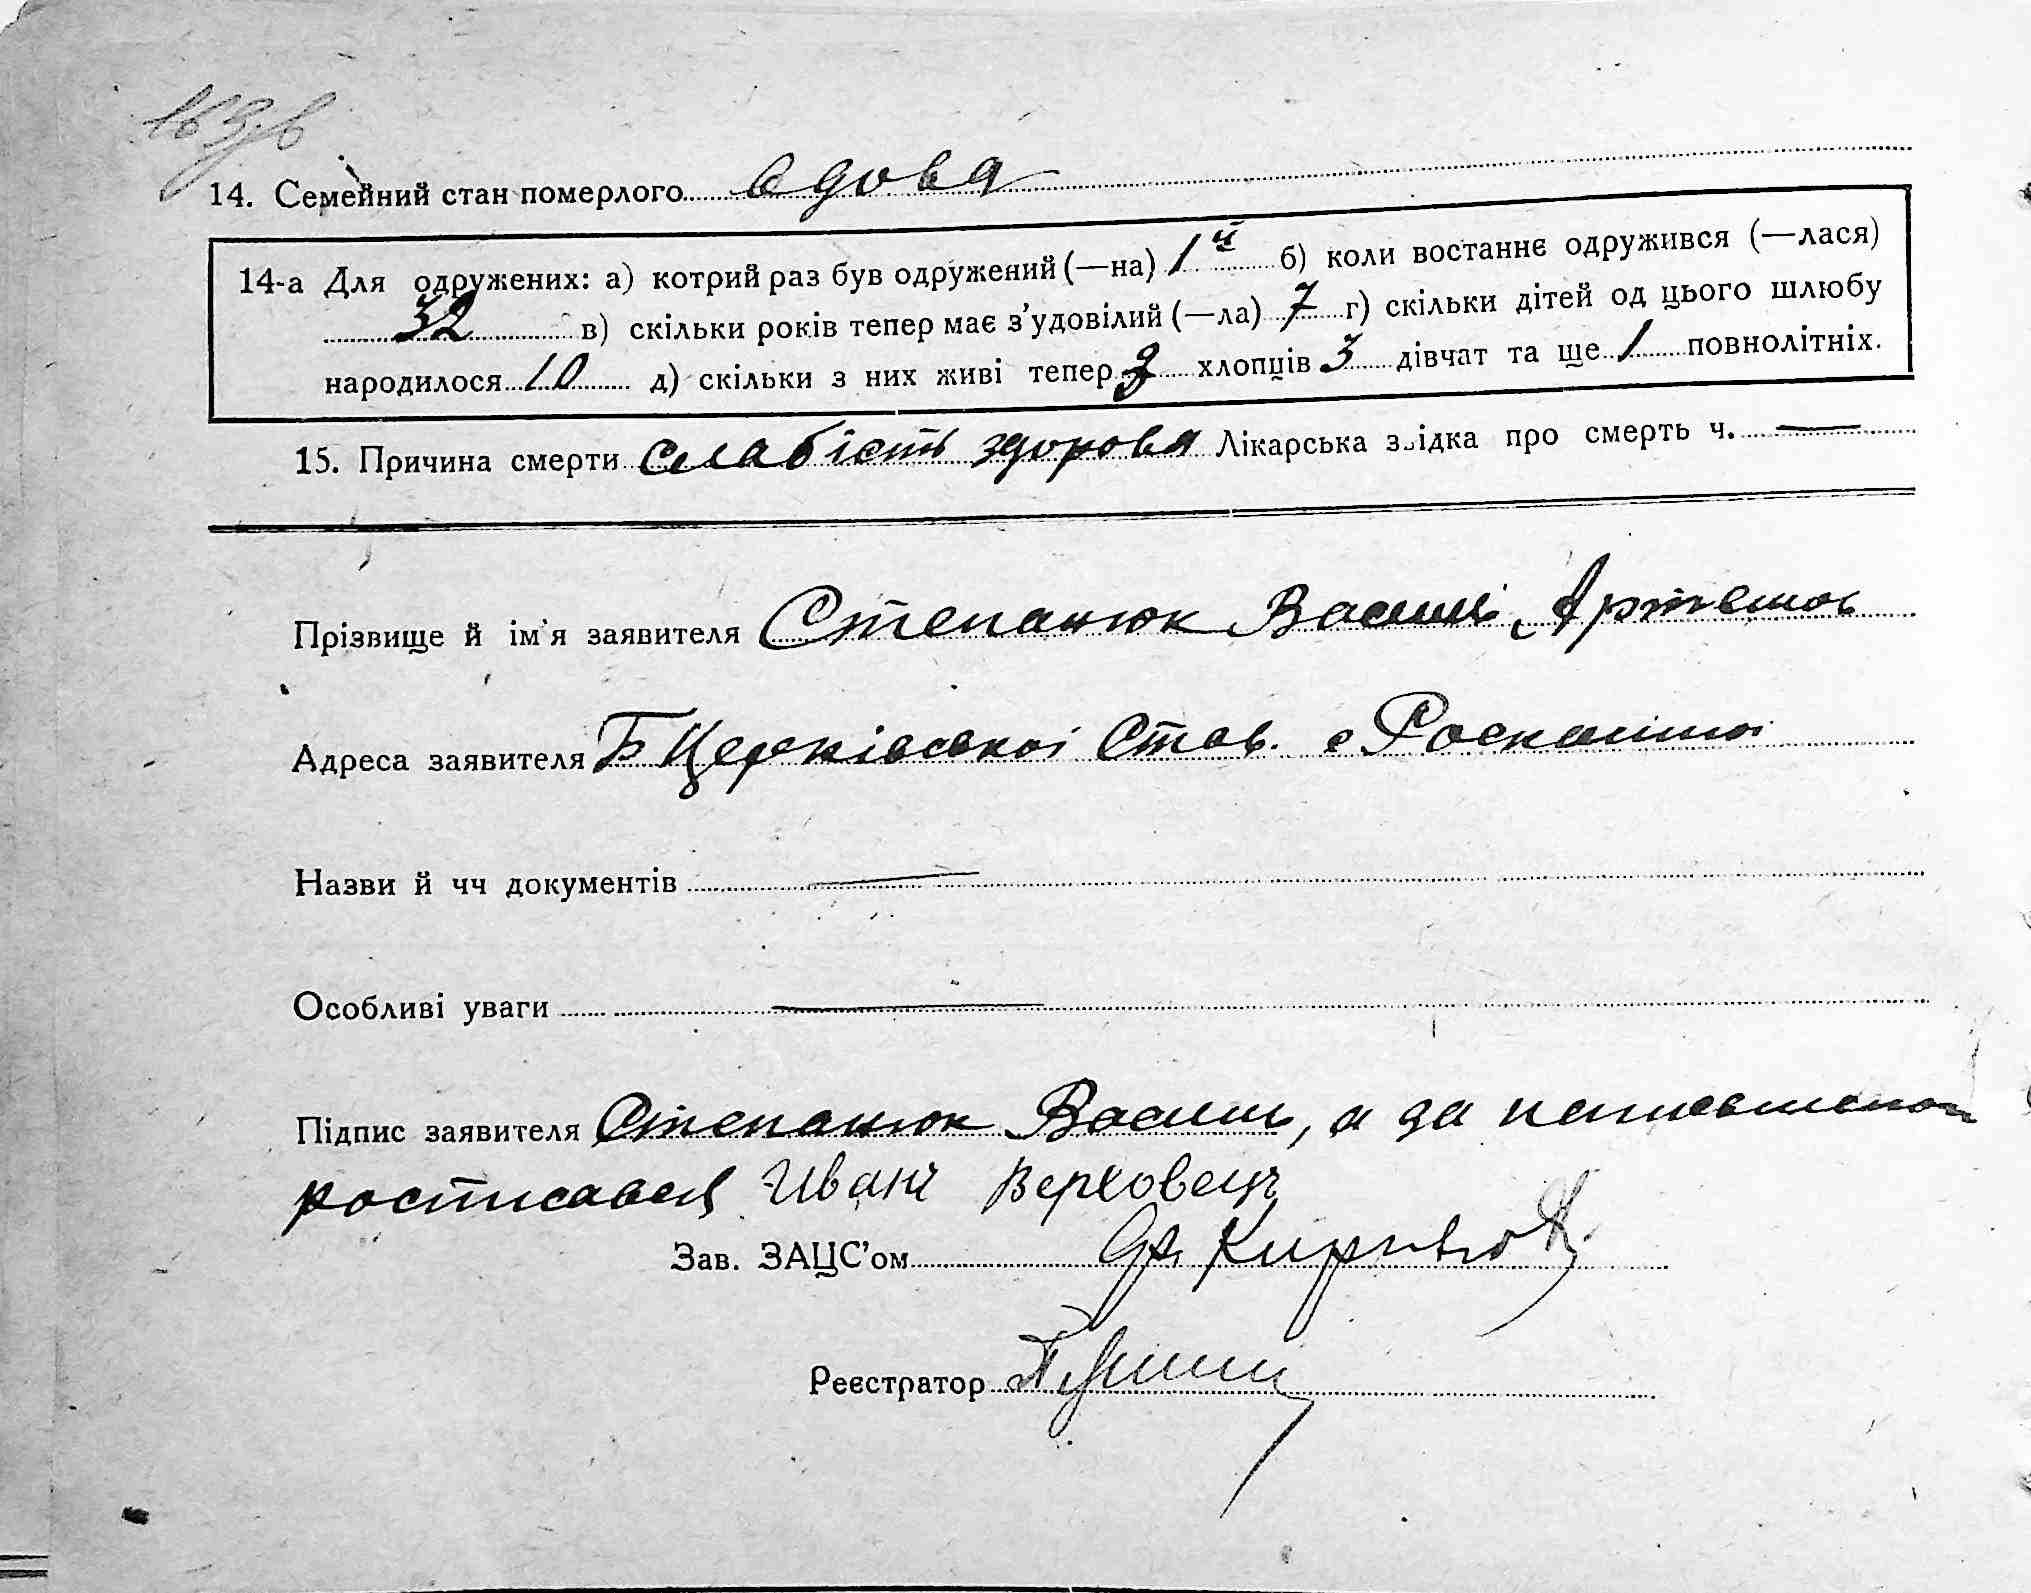 163зв
14. Семейний стан померлого вдова
14-а Для одружених: а) котрий раз був одружений (—на) 1й б) коли востаннє одружився (—лася)
32 в) скільки років тепер має з'удовілий (—ла) 7 г) скільки дітей од цього шлюбу
народилося 10 д) скільки з них живі тепер 3 хлопців 3 дівчат та ще 1 повнолітніх.
15. Причина смерти слабість здоровя Лікарська звідка про смерть ч. —
Прізвище й ім'я заявителя Степанюк Василі Артемов
Адреса заявителя Б Церківської Став. с
Назви й чч документів —
Особливі уваги —
Підпис заявителя Степанюк Василь, а за неписьменого
росписався Иван Верховець
Зав. ЗАЦС'ом
Реєстратор